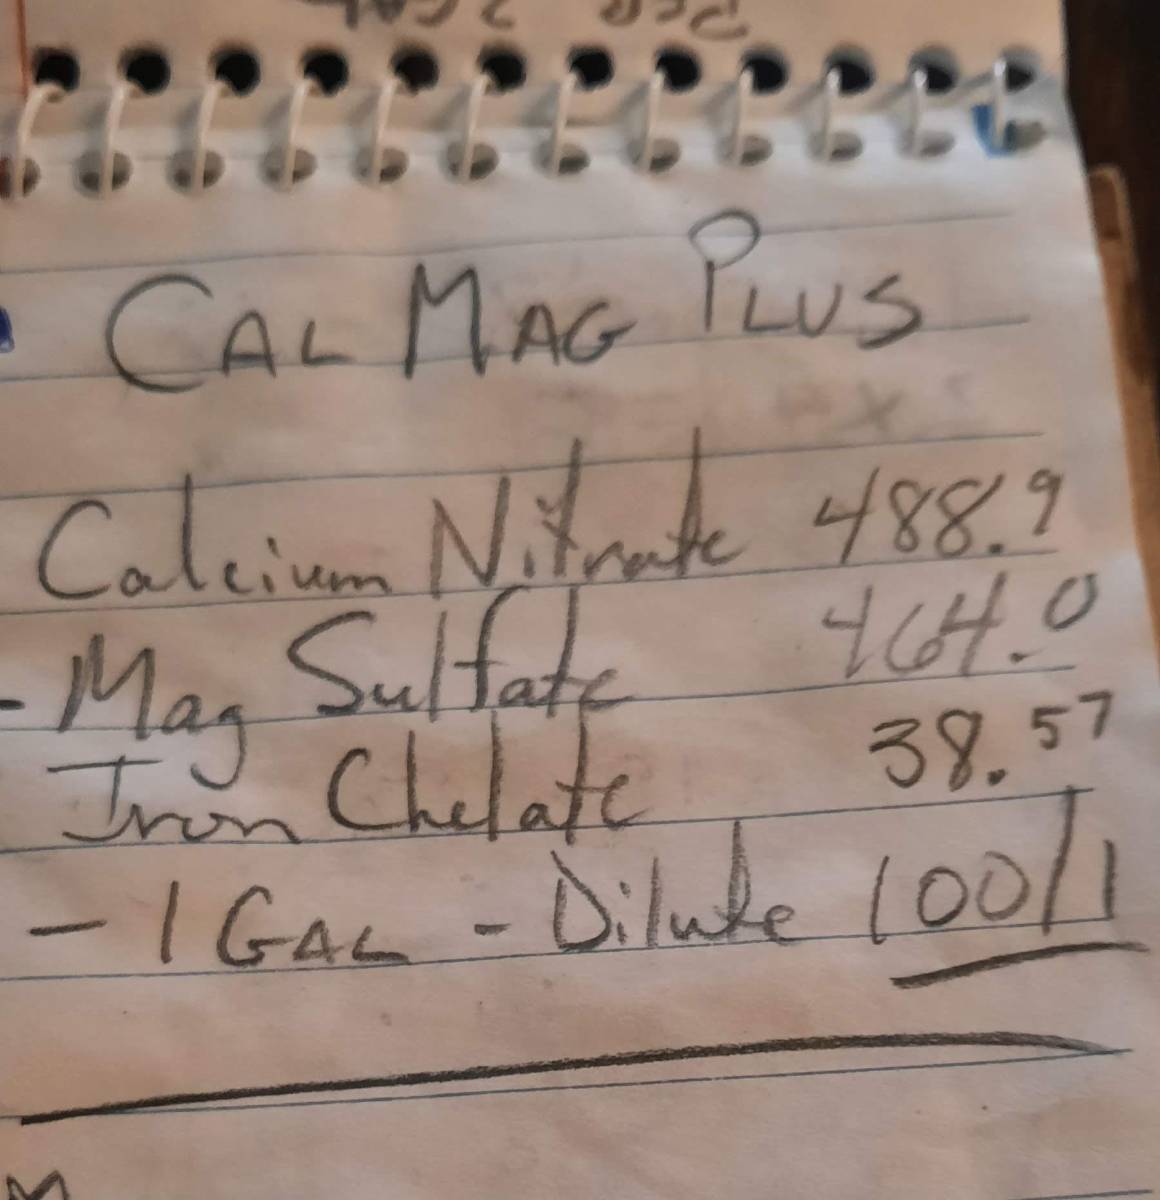 CAL MAG PLUS
Calcium Nitrate 488.9
- Mag Sulfate 464.0
Iron Chelate 38.57
- 1 GAL - Dilute 100/1